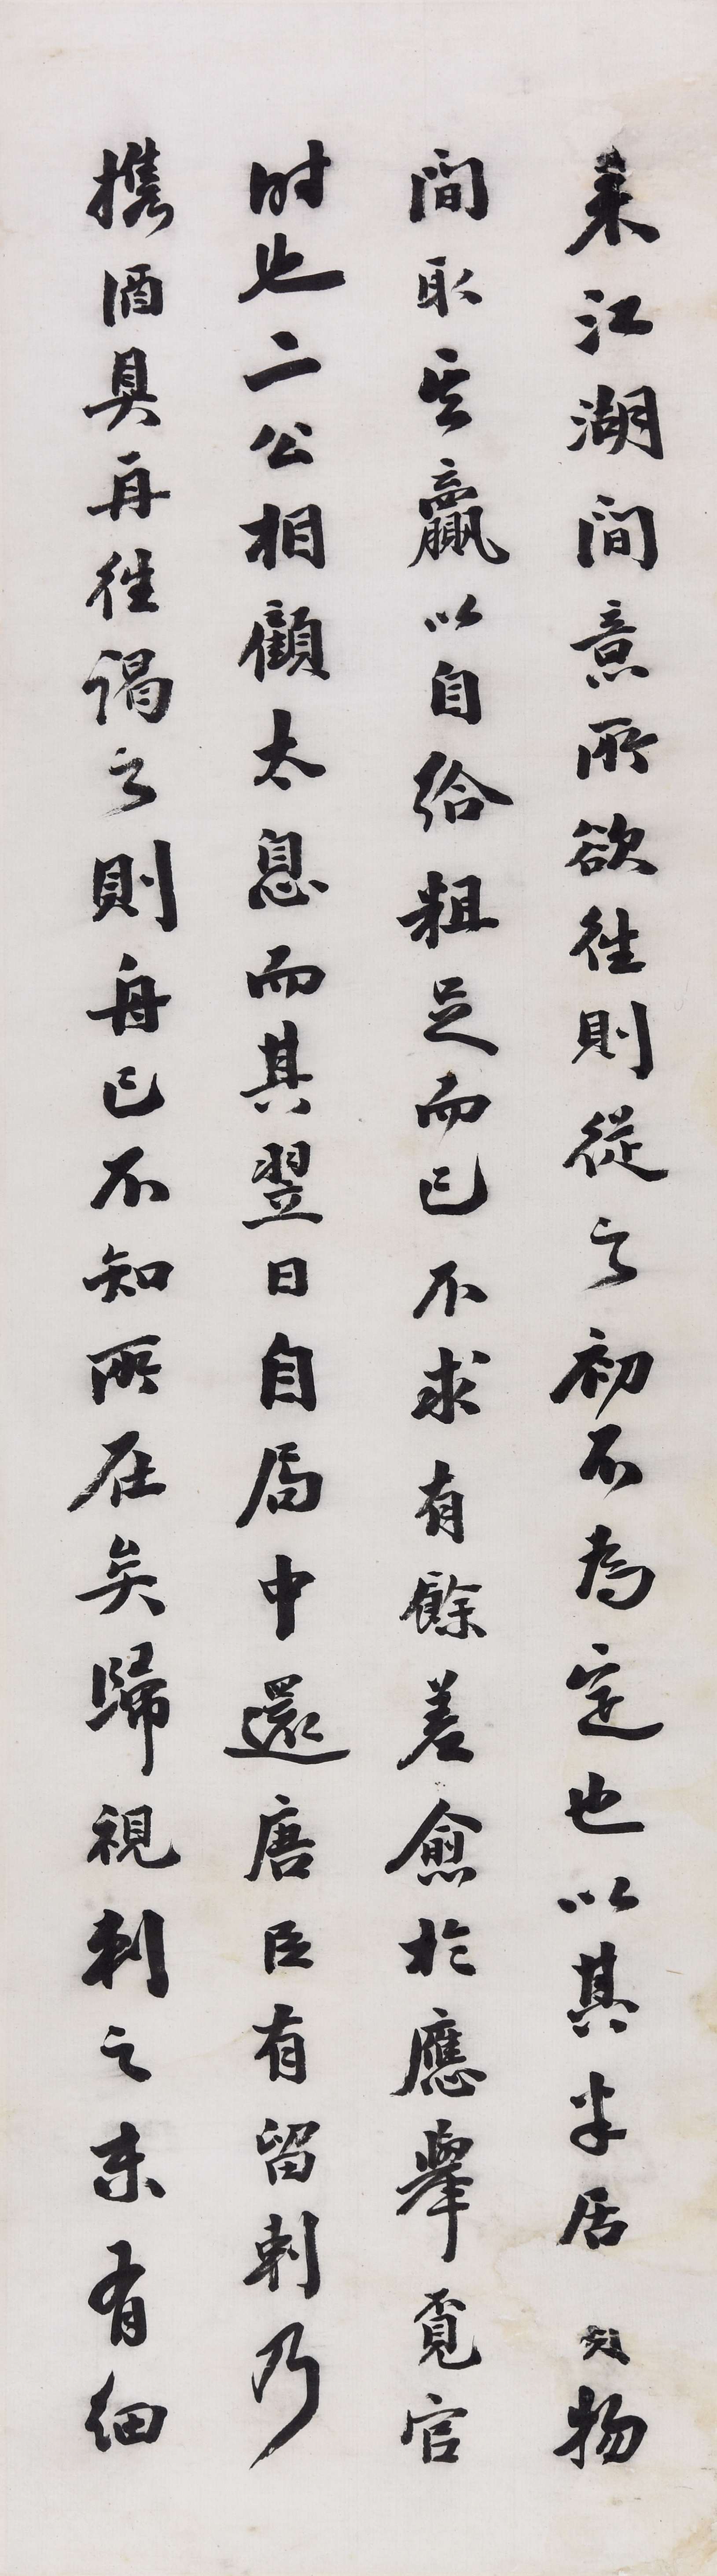 来江湖間意所欲往則從之初不為定也以其半居貨物
間取其贏以自給粗足而已不求有餘差愈於應舉覓官
时也二公相顧太息而其翌日自局中還唐臣有留刺乃
攜酒具再往謁之則舟已不知所在矣歸視刺之末有細